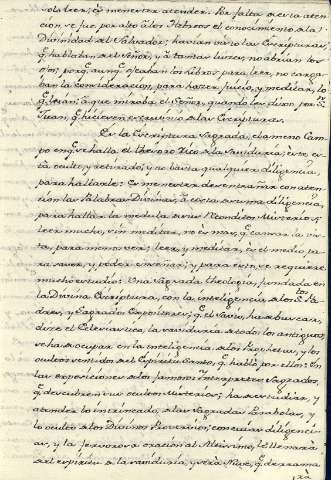 vola leer, es menester atender. Por falta de esta aten
cion se fue por alto a los Hebreos el conocimiento de la
Divinidad del Salvador; havian visto las Escripturas,
q. hablaban del Señor, y à tantas luzes, no abrian los
ojos; porq. aunq. ojeaban los Libros para leer, no carga
ban la consideracion, para hazer juicio, y meditar, lo
q. leian; à que miraba el Señor, quando les dixo por S.
Juan, q. hiciesen escrutinio de las Escripturas.
Es la Escriptura Sagrada, el ameno Cam
po en q. se halla el thesoro rico de la Sabiduria; este, es
ta oculto, y retirado, y no basta qualquiera diligencia,
para hallarle: Es menester desentrañar con aten
cion las Palabras Divinas, à costa de suma diligencia,
para hallar la medula de sus reconditos Misterios;
leer mucho, sin meditar, no es mas, q. cansar la vis
ta, para menos ver; leer, y meditar, es el medio, pa
ra saver, y poder enseñar; y para esto, se requiere
mucho estudio: Una Sagrada Theologia, fundada en
la Divina Escriptura, con la inteligencia de los S.tos Pa
dres, y Sagrados Expositores; q. el Savio, ha de buscar,
dice el Eclesiastico, la sabiduria de todos los antiguos,
se ha de ocupar en la inteligencia de los Prophetas, y los
ocultos sentidos del Espiritu Santo, q. habló por ellos: En
las exposiciones de los famosos Interpretes Sagrados,
q. descubren sus ocultos Misterios; ha de estudiar, y
atender lo intrincado de las Sagradas Parabolas, y
lo oculto de los Divinos Proverbios; con cuias diligenci
as, y la fervorosa oracion al Altissimo, le llenará
del espiritu de la sabiduria, y será Nube, q. derrama
rà